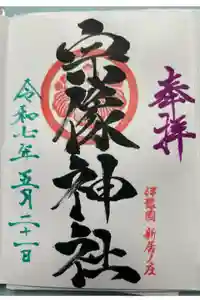 奉拝
伊勢國 新居ノ庄
宗像神社
令和七年 五月二十一日